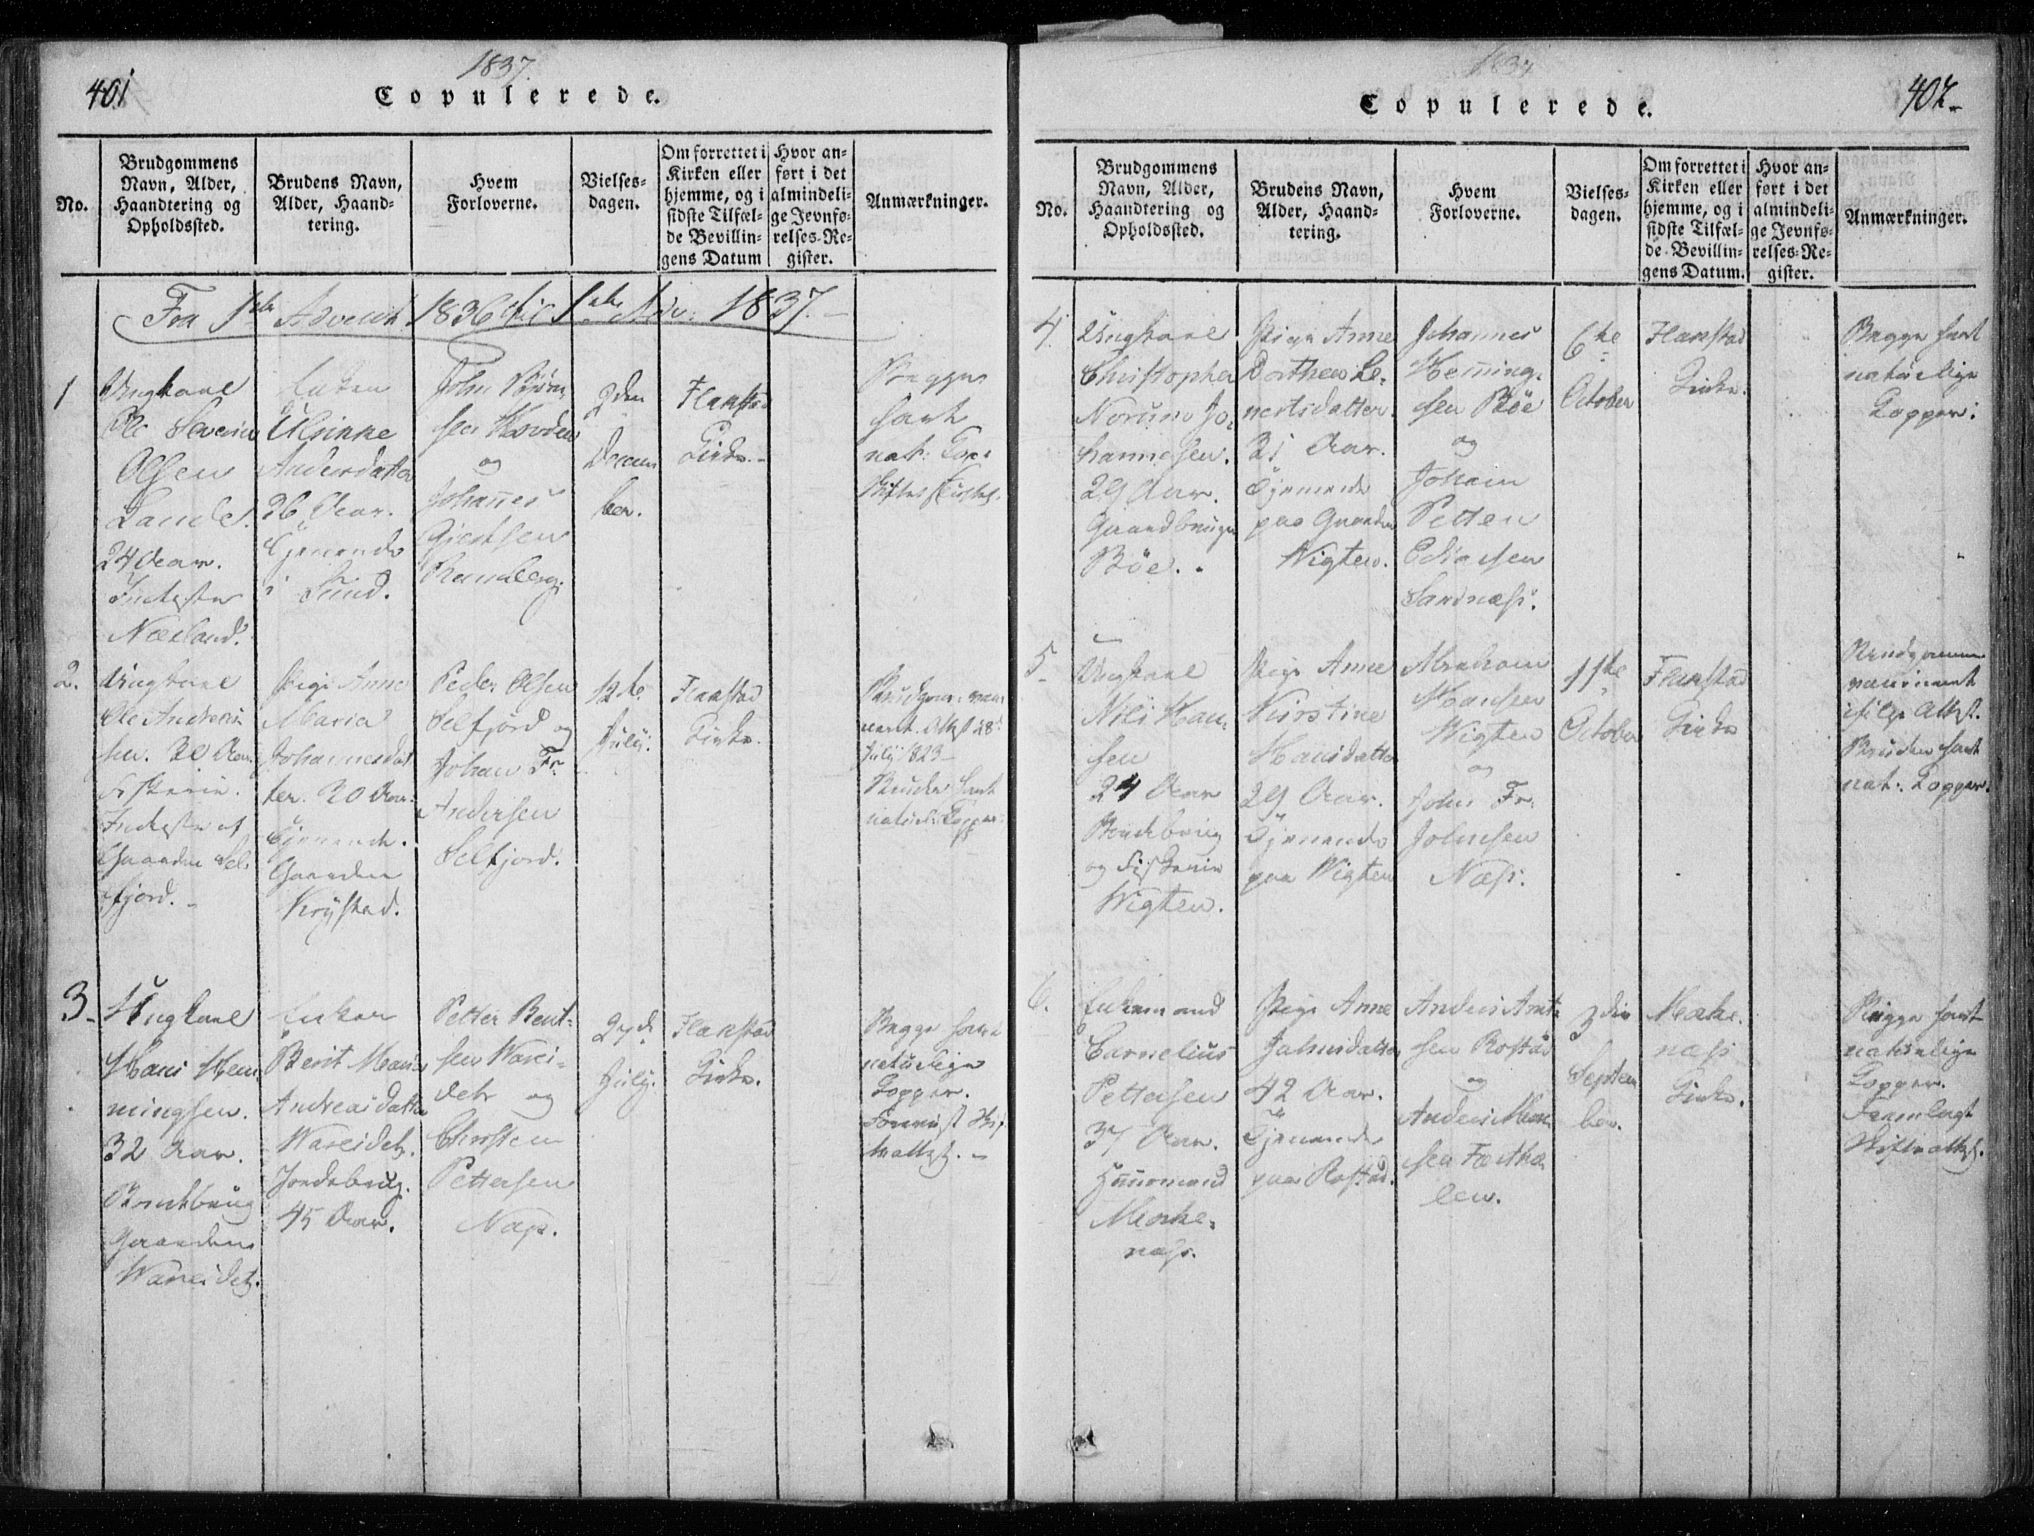 401
1837.
Copulerede.
No.
Brudgommens
Navn, Alder,
Haandtering og
Opholdssted.
Brudens Navn,
Alder, Haand-
tering.
Hvem
Forloverne.
Vielses-
dagen.
Om forrettet i
Kirken eller
hjemme, og i
sidste Tilfæl-
de Bevillin-
gens Datum
Hvor an-
ført i det
almindeli-
ge Jevnfø-
relses-Re-
gister.
Anmærkninger.
Fra 1ste Advent 1836 til 1ste Adv: 1837.
1
Ungkarl
Ole Severin
Olsen
Lande.
24 Aar.
Inderste
Næsland.
Enken
Ulrikke
Andersdatter
26 Aar.
Tjenende
i Sund.
John
sen
og
Johannes
Gjertsen
Ramberg.
2den
Decem
ber.
Flakstad
Kirke.
Begge
havt
nat: Kop:
2.
Ungkarl
Ole Andrea
sen. 30 Aar.
Fiskerie.
Inderste af
Gaarden Sel
fjord.
Pige Anne
Maria
Johannesdat
ter. 30 Aar.
Tjenende.
Gaarden
Krystad.
Peder Olsen
Selfjord og
Johan Fr.
Andersen
Selfjord.
12te
July.
Flakstad
Kirke.
Brudgom: vac
July 1823
Bruden havt
naturl: Kopper.
3.
Ungkarl
Hans Hem
mingsen.
32 Aar.
Bondebrug
Gaarden
Wareidet.
Enken
Berit Maria
Andreasdatter
Wareidet.
Jordebrug.
45 Aar.
Petter Bent-
sen Warei-
det og
Christen
Pettersen
Nap.
27d.
July.
Flakstad
Kirke.
Begge havt
naturlige
Kopper.
Forevist Skif
teattest.
1837
Copulerede.
402
No.
Brudgommens
Navn, Alder,
Haandtering og
Opholdssted.
Brudens Navn,
Alder, Haand-
tering.
Hvem
Forloverne.
Vielses-
dagen.
Om forrettet i
Kirken eller
hjemme, og i
sidste Tilfæl-
de Bevillin-
gens Datum.
Hvor an-
ført i det
almindeli-
ge Jevnfø-
relses-Re-
gister.
Anmærkninger.
4.
Ungkarl
Christopher
Norum Jo-
hannesen.
29 Aar.
Gaardbruger
Böe.
Pige Anne
Dorthea Le-
nertsdatter.
31 Aar.
Tjenende
paa Gaarden
Wigten.
Johannes
Hemming-
sen Böe
og
Johan
Petter
Ediassen
Sandnæs.
6te
October
Flakstad
Kirke.
Begge havt
naturlige
Kopper.
5.
Ungkarl
Nils Han-
sen
24 Aar
Bondebrug
og Fiskerie
Wigten.
Pige Anne
Kirstine
Hansdatter
29 Aar.
Tjenende
paa Wigten
Abraham
Hansen
Wigten
og
John Fr.
Johnsen
Næss.
11te
October
Flakstad
Kirke
Brudgommen
vaccineret
ifölge Attest.
Bruden havt
nat: Kopper.
6.
Enkemand
Cornelius
Pettersen
37 Aar.
Huusmand
Mærke-
næss.
Pige Anne
Johnsdatter
42 Aar.
Tjenende
paa Rostad.
Anders Arnt
sen Rostad
og
Anders Han
sen Færthæ
len.
3die
Septem
ber.
Mærke-
næss
Kirke.
Begge havt
naturlige
Kopper.
Fremlagt
Skifteattest.